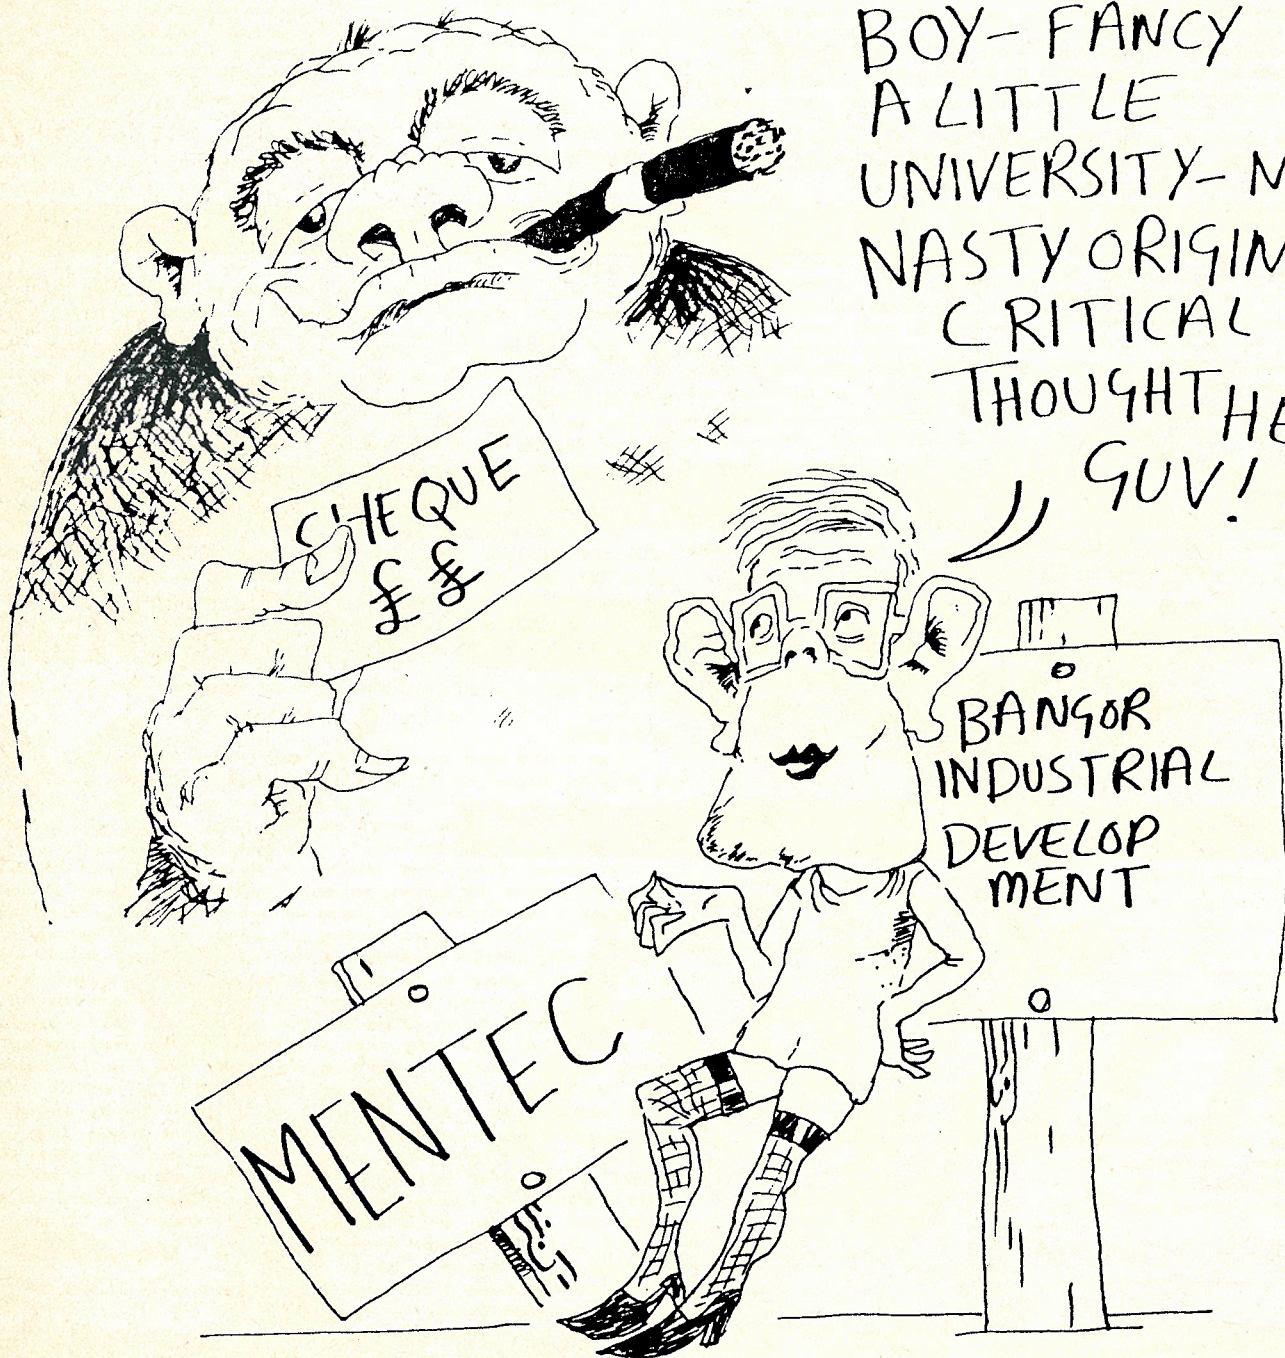 BOY- FANCY
A LITTLE
UNIVERSITY-
NASTY
CRITICAL
THOUGHT
GUV!
CHEQUE
£ £
BANGOR
INDUSTRIAL
DEVELOP
MENT
MENTEC